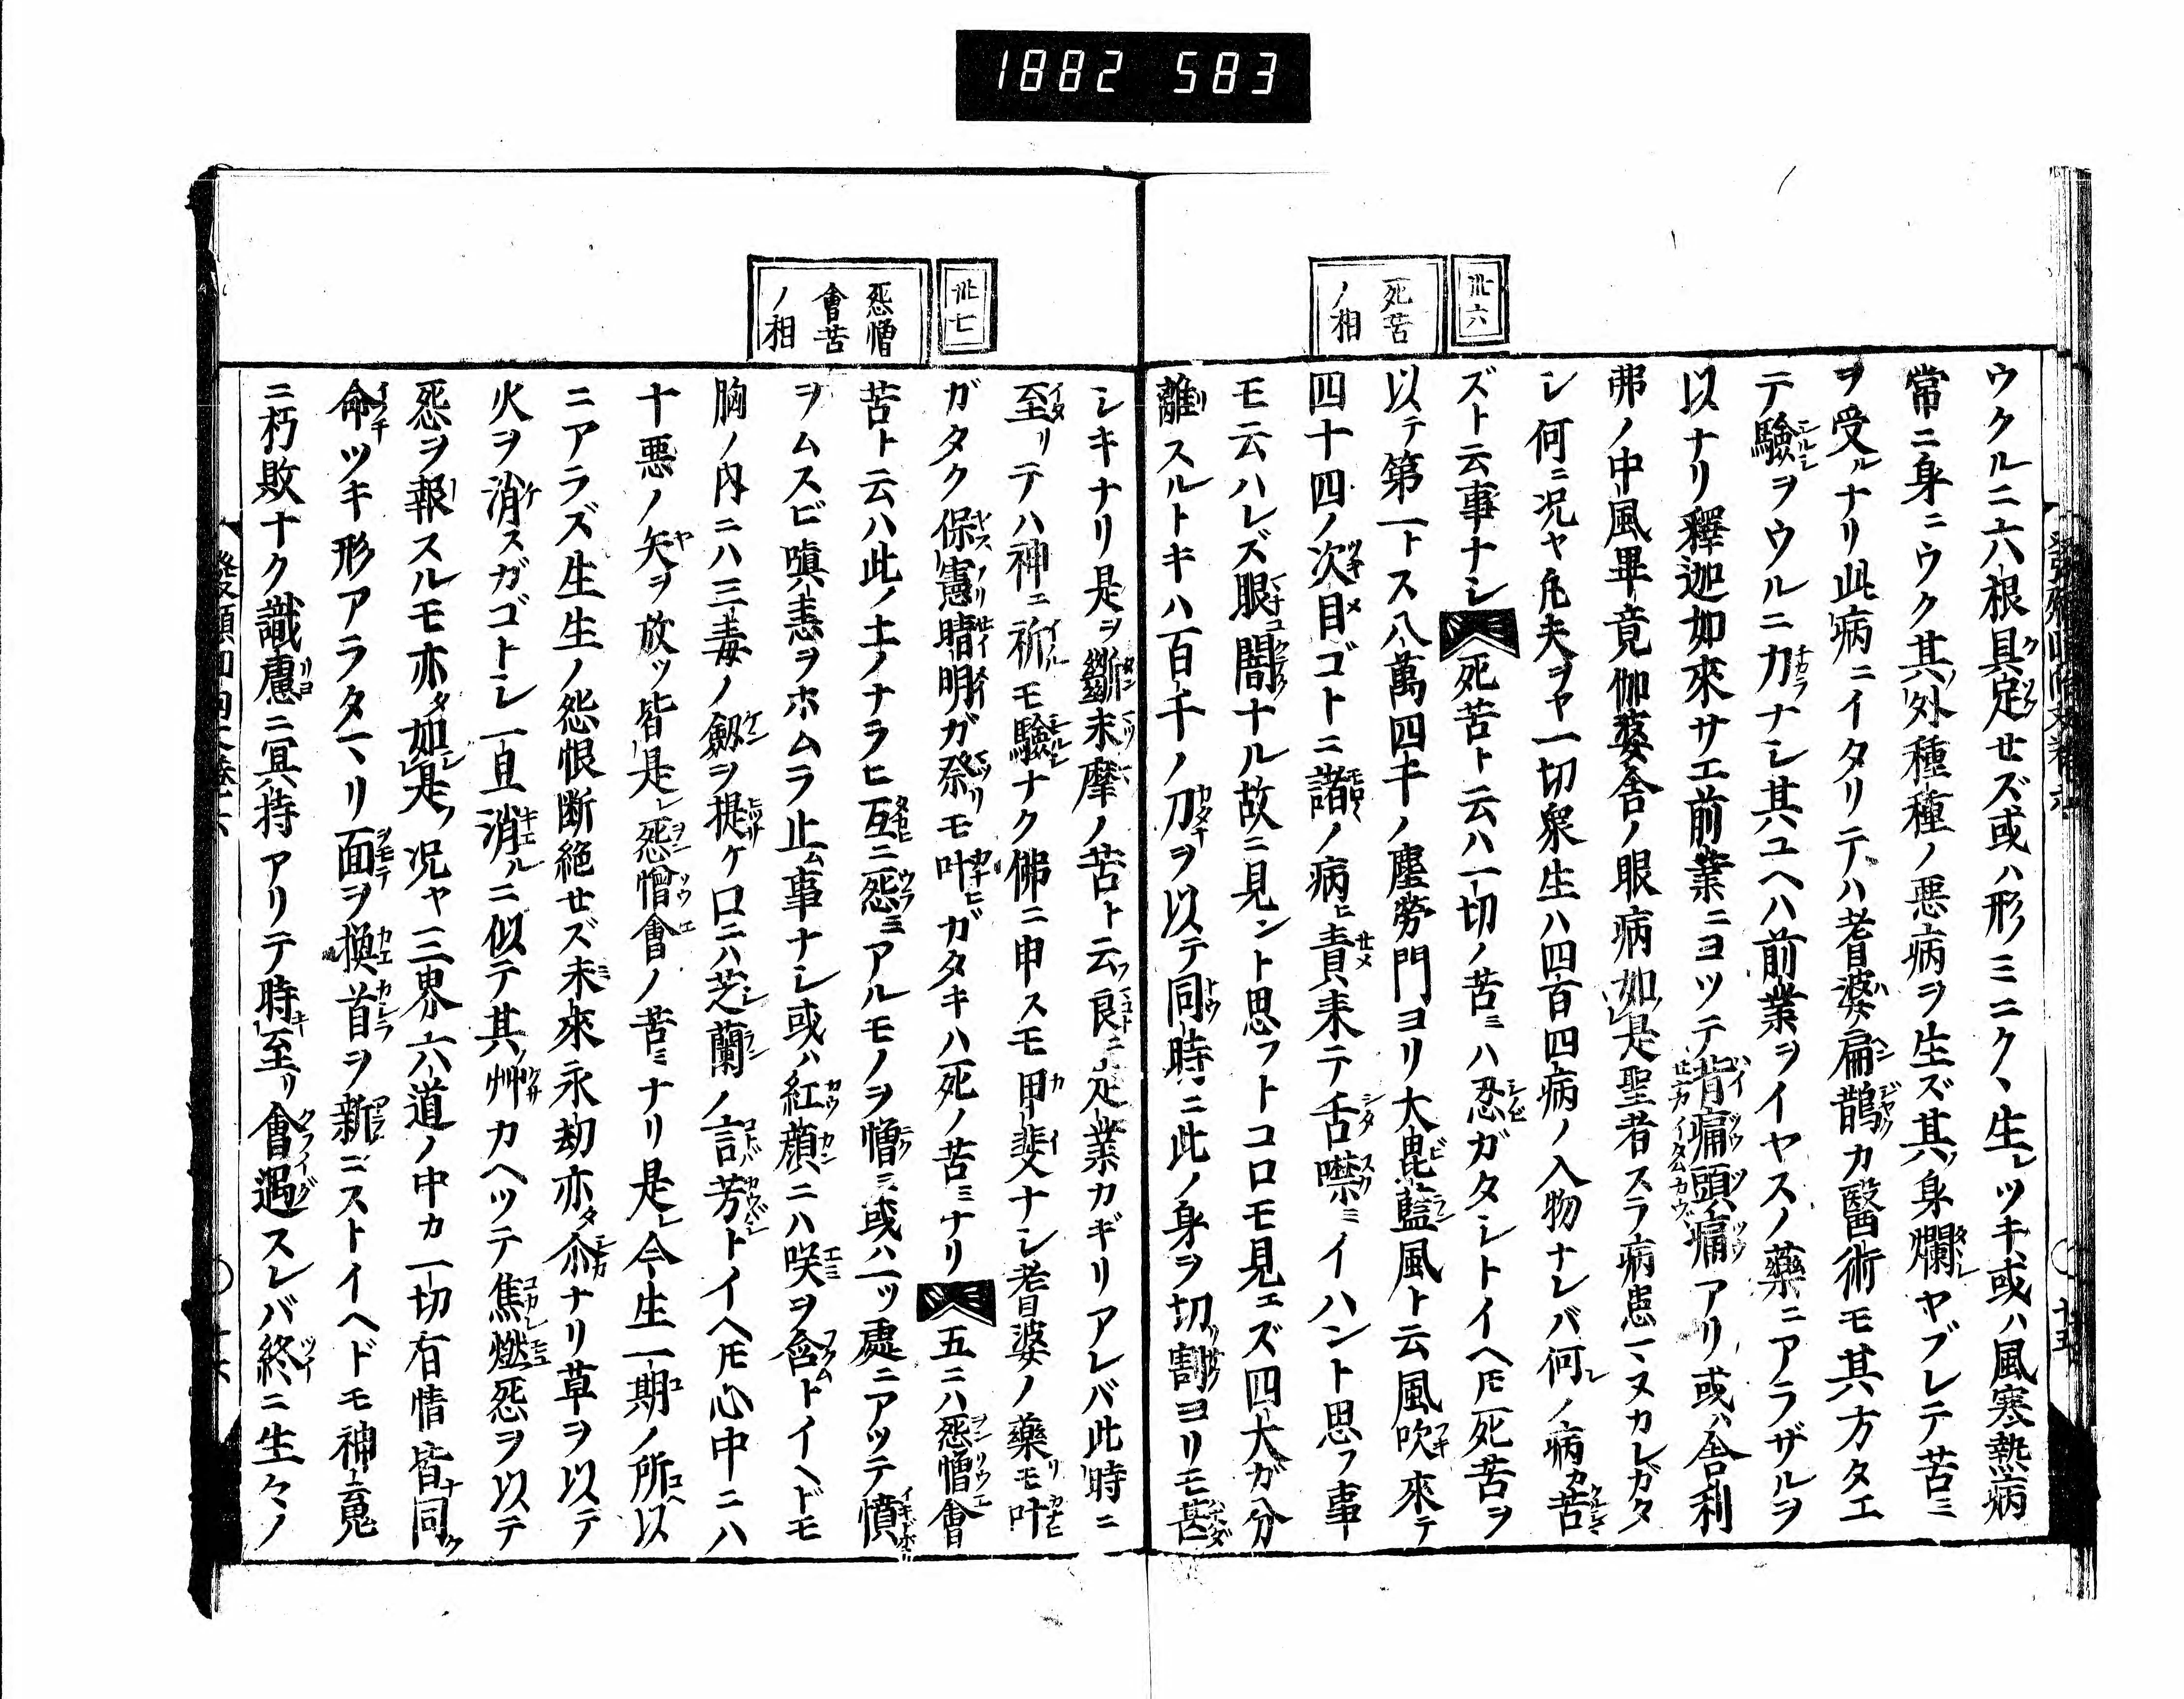 1882 583
卅六
死苦
ノ相
ウクルニ六根具足セズ或ハ形ミニクヽ生レツキ或ハ風寒熱病
常ニ身ニウク其外種種ノ悪病ヲ生ズ其身爛ヤブレテ苦ミ
ヲ受ルナリ此病ニイタリテハ耆婆扁鵲カ醫術モ其方タエ
テ驗ヲウルニ力ナシ其ユヘハ前業ヲイヤスノ藥ニアラザルヲ
以ナリ釋迦如來サエ前業ニヨツテ背痛頭痛アリ或ハ舎利
弗ノ中風畢竟伽婆舎ノ眼病如是聖者スラ病患マヌカレガタ
シ何ニ况ヤ凡夫ヲヤ一切衆生ハ四百四病ノ入物ナレバ何レノ病カ苦
ズト云事ナシ死苦ト云ハ一切ノ苦ミハ忍ガタシトイヘ𪜈死苦ヲ
以テ第一トス八萬四千ノ塵勞門ヨリ大毘藍風ト云風吹來テ
四十四ノ次目ゴトニ諸ノ病ヒ責来テ舌噤ミイハント思フ事
モ云ハレズ眼闇ナル故ニ見ント思フトコロモ見エズ四大ガ分
離スルトキハ百千ノ刀ヲ以テ同時ニ此ノ身ヲ切割ヨリモ甚
卅七
怨憎
會苦
ノ相
シキナリ是ヲ斷末摩ノ苦ト云フ良ニ定業カギリアレバ此時ニ
至リテハ神ニ祈ルモ驗ナク佛ニ申スモ甲斐ナシ耆婆ノ藥モ叶
ガタク保憲晴明ガ祭リモ叶ヒガタキハ死ノ苦ミナリ五ニハ怨憎會
苦ト云ハ此ノ土ノナラヒ互ニ怨ミアルモノヲ憎ミ或ハ一ツ處ニアツテ憤
ヲムスビ嗔恚ヲホムラ止ム事ナシ或ハ紅顔ニハ咲ヲ含ムトイヘドモ
胸ノ内ニハ三毒ノ劔ヲ提ケ口ニハ芝蘭ノ言芳トイヘ𪜈心中ニハ
十悪ノ矢ヲ放ツ皆是レ怨憎會ノ苦ミナリ是レ今生一期ノ所以
ニアラズ生生ノ怨恨断絶セズ未來永劫亦タ尒ナリ草ヲ以テ
火ヲ消スガゴトシ一旦消ルニ似テ其ノ艸カヘツテ焦燃怨ヲ以テ
怨ヲ報スルモ亦タ如是况ヤ三界六道ノ中カ一切有情皆同ク
命ツキ形アラタマリ面ヲ換首ヲ新ニストイヘドモ神鬼
ニ朽敗ナク識慮ニ冥持アリテ時至リ會遇スレバ終ニ生々ノ